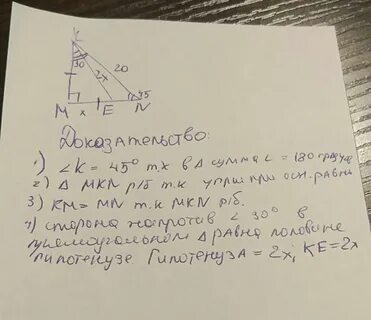 K
30
2x
20
45
M x E N
Доказательство:
1) ∠K = 45° т.к в Δ сумма ∠ = 180 градусов
2) Δ MKN р/б т.к углы при осн. равны
3) KM = MN т.к MKN р/б.
4) сторона напротив ∠ 30° в
прямоугольном Δ равна половине
гипотенузе Гипотенуза = 2x, KE = 2x